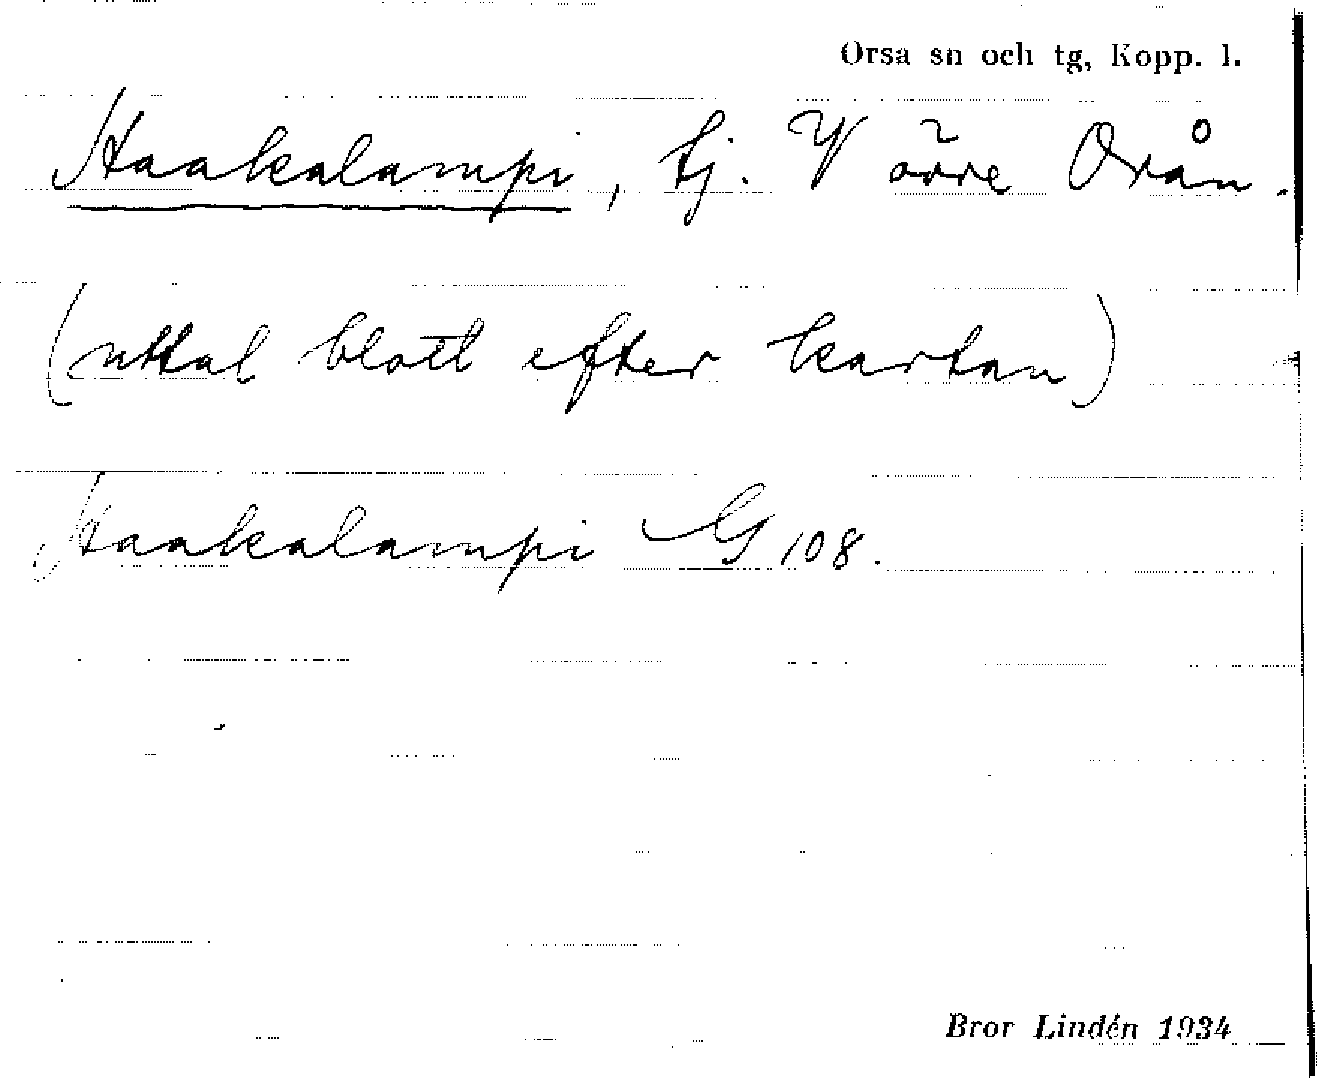 Orsa sn och tg, Kopp. l.
Haakalampi, tj. V övre Oxån.
(uttal blott efter kartan)
Haakalampi G 108.
Bror Lindén 1934